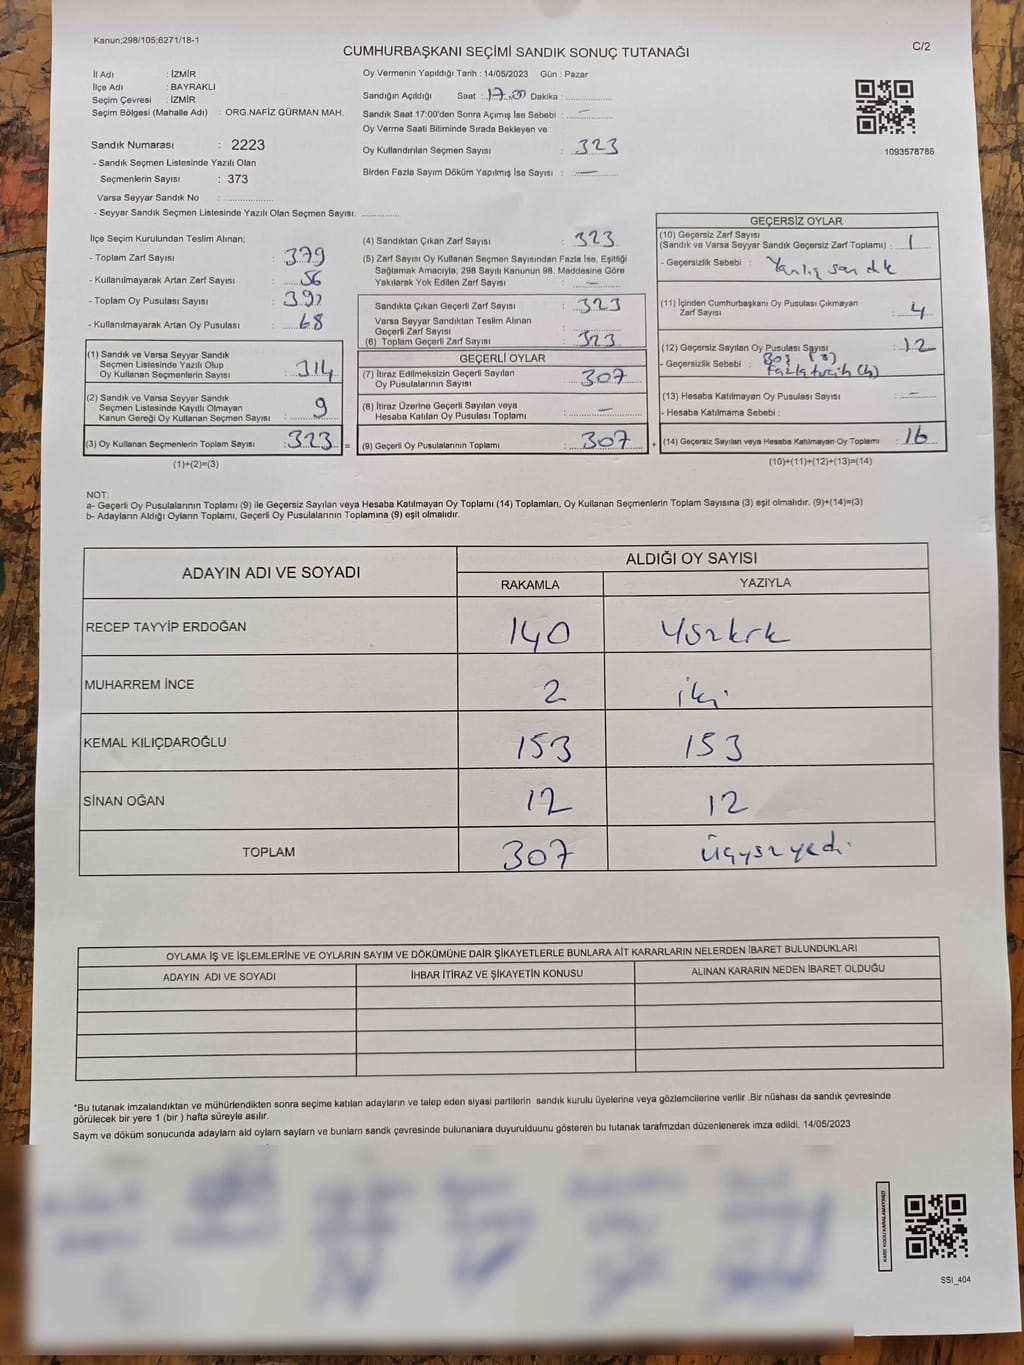 Kanun;298/105;6271/18-1
C/2
CUMHURBAŞKANI SEÇİMİ SANDIK SONUÇ TUTANAĞI
İl Adı : İZMİR
İlçe Adı : BAYRAKLI
Seçim Çevresi : İZMİR
Seçim Bölgesi (Mahalle Adı) : ORG.NAFİZ GÜRMAN MAH.
Sandık Numarası : 2223
- Sandık Seçmen Listesinde Yazılı Olan
Seçmenlerin Sayısı : 373
Varsa Seyyar Sandık No :
- Seyyar Sandık Seçmen Listesinde Yazılı Olan Seçmen Sayısı:
Oy Vermenin Yapıldığı Tarih : 14/05/2023 Gün : Pazar
Sandığın Açıldığı Saat : 17.00 Dakika :
Sandık Saat 17:00'den Sonra Açımış İse Sebebi : —
Oy Verme Saati Bitiminde Sırada Bekleyen ve
Oy Kullandırılan Seçmen Sayısı : 323
Birden Fazla Sayım Döküm Yapılmış İse Sayısı : —
1093578786
İlçe Seçim Kurulundan Teslim Alınan;
- Toplam Zarf Sayısı : 379
- Kullanılmayarak Artan Zarf Sayısı : 56
- Toplam Oy Pusulası Sayısı :
- Kullanılmayarak Artan Oy Pusulası : 68
(1) Sandık ve Varsa Seyyar Sandık
Seçmen Listesinde Yazılı Olup
Oy Kullanan Seçmenlerin Sayısı : 314
(2) Sandık ve Varsa Seyyar Sandık
Seçmen Listesinde Kayıtlı Olmayan
Kanun Gereği Oy Kullanan Seçmen Sayısı : 9
(3) Oy Kullanan Seçmenlerin Toplam Sayısı : 323 =
(1)+(2)=(3)
(4) Sandıktan Çıkan Zarf Sayısı : 323
(5) Zarf Sayısı Oy Kullanan Seçmen Sayısından Fazla İse, Eşitliği
Sağlamak Amacıyla; 298 Sayılı Kanunun 98. Maddesine Göre
Yakılarak Yok Edilen Zarf Sayısı : —
Sandıkta Çıkan Geçerli Zarf Sayısı : 323
Varsa Seyyar Sandıktan Teslim Alınan
Geçerli Zarf Sayısı :
(6) Toplam Geçerli Zarf Sayısı : 323
GEÇERLİ OYLAR
(7) İtiraz Edilmeksizin Geçerli Sayılan
Oy Pusulalarının Sayısı : 307
(8) İtiraz Üzerine Geçerli Sayılan veya
Hesaba Katılan Oy Pusulası Toplamı : —
(9) Geçerli Oy Pusulalarının Toplamı : 307 +
GEÇERSİZ OYLAR
(10) Geçersiz Zarf Sayısı
(Sandık ve Varsa Seyyar Sandık Geçersiz Zarf Toplamı) : 1
- Geçersizlik Sebebi : Yanlış sandık
(11) İçinden Cumhurbaşkanı Oy Pusulası Çıkmayan
Zarf Sayısı : 4
(12) Geçersiz Sayılan Oy Pusulası Sayısı : 12
- Geçersizlik Sebebi :
(13) Hesaba Katılmayan Oy Pusulası Sayısı : —
- Hesaba Katılmama Sebebi :
(14) Geçersiz Sayılan veya Hesaba Katılmayan Oy Toplamı : 16
(10)+(11)+(12)+(13)=(14)
NOT:
a- Geçerli Oy Pusulalarının Toplamı (9) ile Geçersiz Sayılan veya Hesaba Katılmayan Oy Toplamı (14) Toplamları, Oy Kullanan Seçmenlerin Toplam Sayısına (3) eşit olmalıdır. (9)+(14)=(3)
b- Adayların Aldığı Oyların Toplamı, Geçerli Oy Pusulalarının Toplamına (9) eşit olmalıdır.
ADAYIN ADI VE SOYADI
ALDIĞI OY SAYISI
RAKAMLA YAZIYLA
RECEP TAYYİP ERDOĞAN 140 Yüzkırk
MUHARREM İNCE 2 iki
KEMAL KILIÇDAROĞLU 153 153
SİNAN OĞAN 12 12
TOPLAM 307 Üçyüzyedi
OYLAMA İŞ VE İŞLEMLERİNE VE OYLARIN SAYIM VE DÖKÜMÜNE DAİR ŞİKAYETLERLE BUNLARA AİT KARARLARIN NELERDEN İBARET BULUNDUKLARI
ADAYIN ADI VE SOYADI İHBAR İTİRAZ VE ŞİKAYETİN KONUSU ALINAN KARARIN NEDEN İBARET OLDUĞU
*Bu tutanak imzalandıktan ve mühürlendikten sonra seçime katılan adayların ve talep eden siyasi partilerin sandık kurulu üyelerine veya gözlemcilerine verilir .Bir nüshası da sandık çevresinde
görülecek bir yere 1 (bir ) hafta süreyle asılır.
Saym ve döküm sonucunda adaylarn ald oylarn saylarn ve bunlarn sandk çevresinde bulunanlara duyurulduunu gösteren bu tutanak tarafmzdan düzenlenerek imza edildi. 14/05/2023
KARE KODU KARALAMAYINIZ!
SSI_404